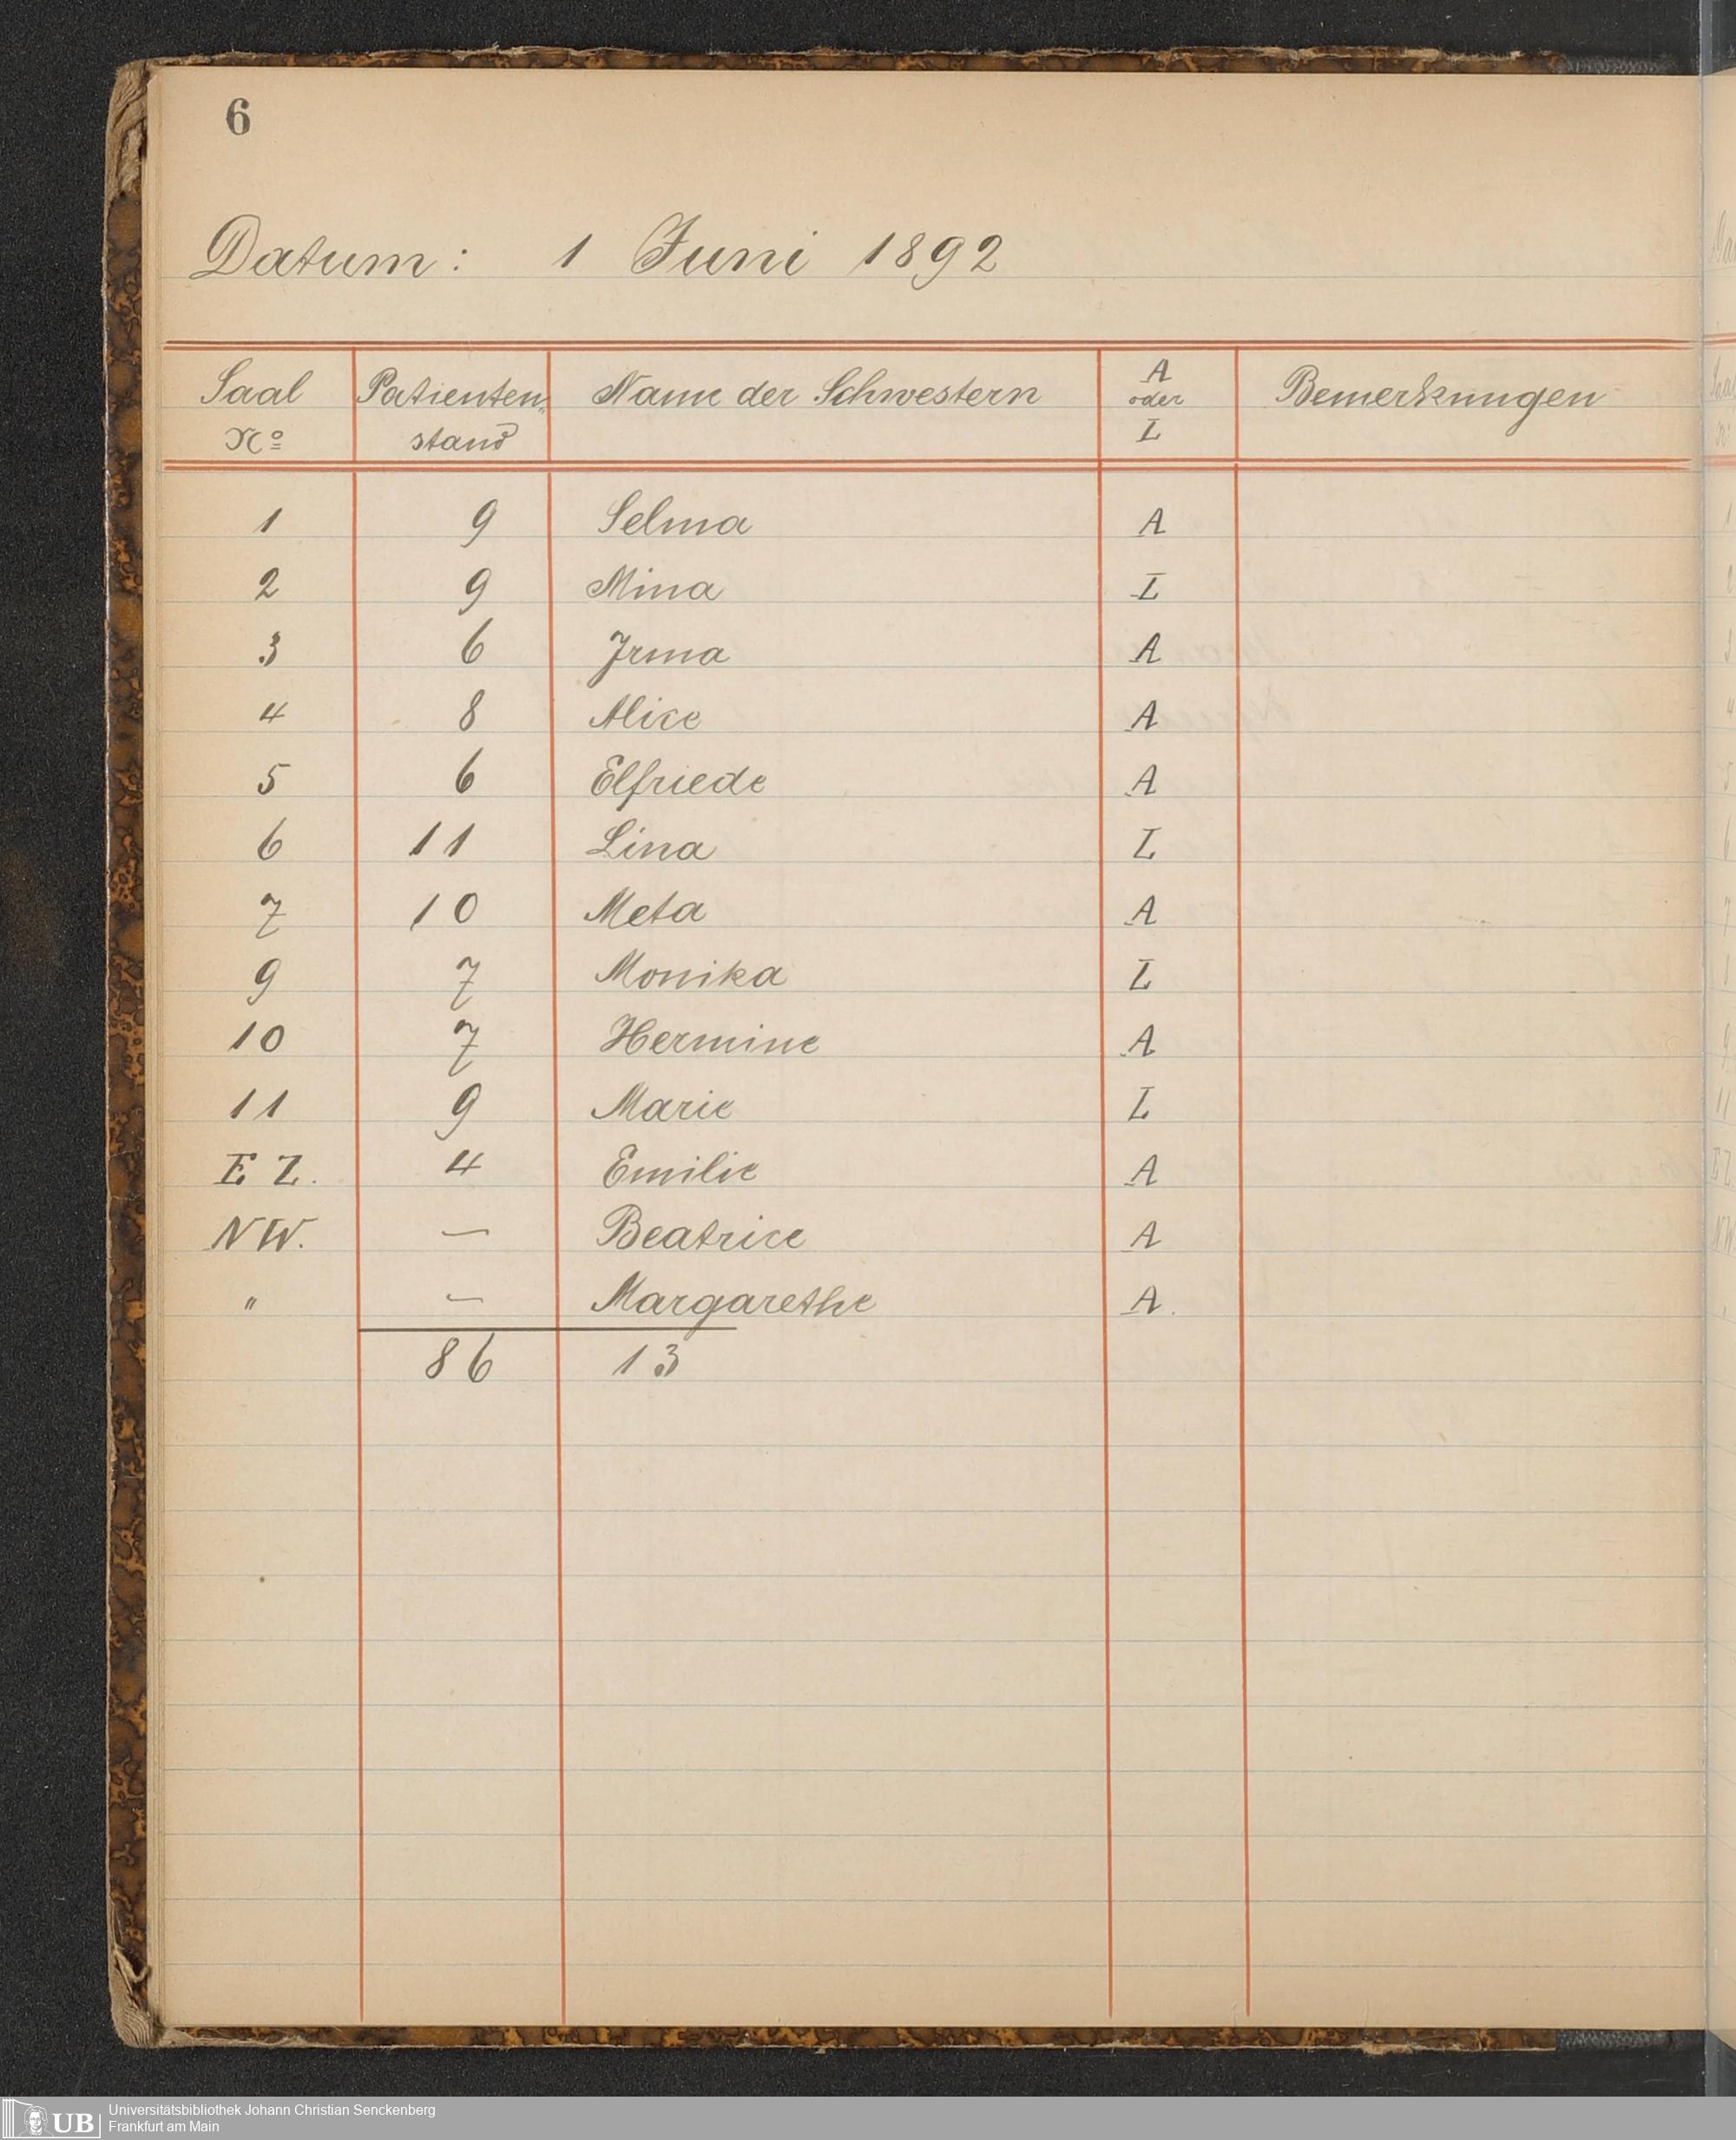 6
Datum: 1 Juni 1892
Saal No Patienten„stand Name der Schwestern A oder L Bemerkungen
1 9 Selma A
2 9 Mina L
3 6 Irma A
4 8 Alice A
5 6 Elfriede A
6 11 Lina L
7 10 Meta A
9 7 Monika L
10 7 Hermine A
11 9 Marie L
E Z. 4 Emilie A
NW. — Beatrice A
" — Margarethe A.
86 13
UB Universitätsbibliothek Johann Christian Senckenberg
Frankfurt am Main